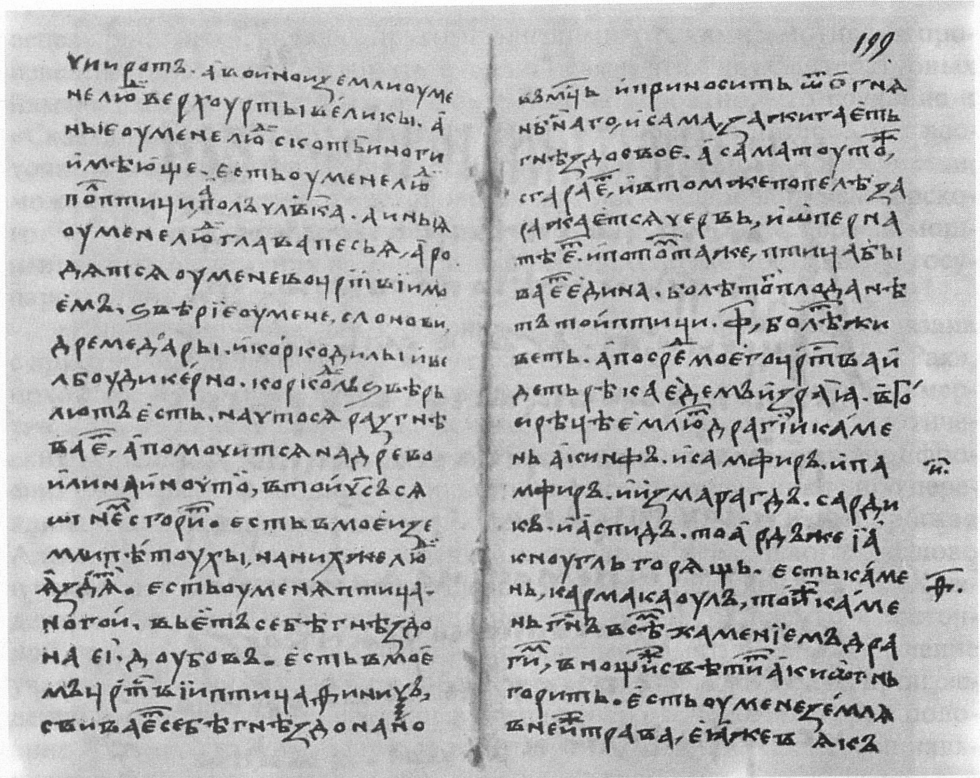 ꙋниротъ. а въ инои земли ѹ мене
нелюⷣ верхѹ рты великы. а
ныѥ ѹ мене люⷣ скотьи ноги
имѣюще. есть ѹ мене люⷣ
поⷧ птици, а поⷧ члвка. а иныꙗ
ѹ мене люⷣ глава песьꙗ, а ро
дѧтсѧ ѹ мене во цртⷭвіи мо
емъ. ѕвѣріе ѹ мене, слонови,
дремедары. и коркодилы и ве
лбоуди керно. корколⷣъ ѕвѣрь
лютъ есть. на что сѧ разгнѣ
ваеⷮ, а помочитсѧ на древо
или на ино что, в той чⷭъ сѧ
ѿгнеⷨ сгориⷮ. есть в моеи зе
мли пѣтоухы, на ниⷯ же люⷣ
ѣздѧⷮ. есть ѹ менѧ птица
ногои. вьетъ себѣ гнѣздо
на еі. доубовъ. есть в мое
мъ цртⷭвіи птица финикъ,
свиваеⷮ себѣ гнѣздо на но
199
въ мцъ и приноситъ ѿ огнѧ
нбⷭнаго, и сама зажигаетъ
гнѣздо свое. а сама тоу тоⷤ,
сгараеⷮ, и в том же попелѣ за
ражаетсѧ червь, и ѡперна
тѣеⷮ. и потоⷨ та же, птица бы
ваеⷮ едина. болѣ тоⷢ плода нѣ
тъ той птици. ф, боⷧ лѣⷮ жи
веть. а посреⷣ моего цртⷭва и
деть рѣка едемъ из раіа. в тⷪ
и рѣцѣ емлюⷮ драгій каме
нь акинфъ. и самфиръ. и па
мфиръ. и измарагдъ. сарди
къ. и аспидъ. тоа рдъ же іа
к ноугль горѧщь. есть каме
нь, кармакаоулъ, той каме
нь гнⷭъ всѣⷨ камениемъ дра
гиⷨ, в нощи свѣтиⷮ аки ѡгнь
горитъ. есть ѹ мене землѧ
в неи трава, еѧ же в ѧкъ